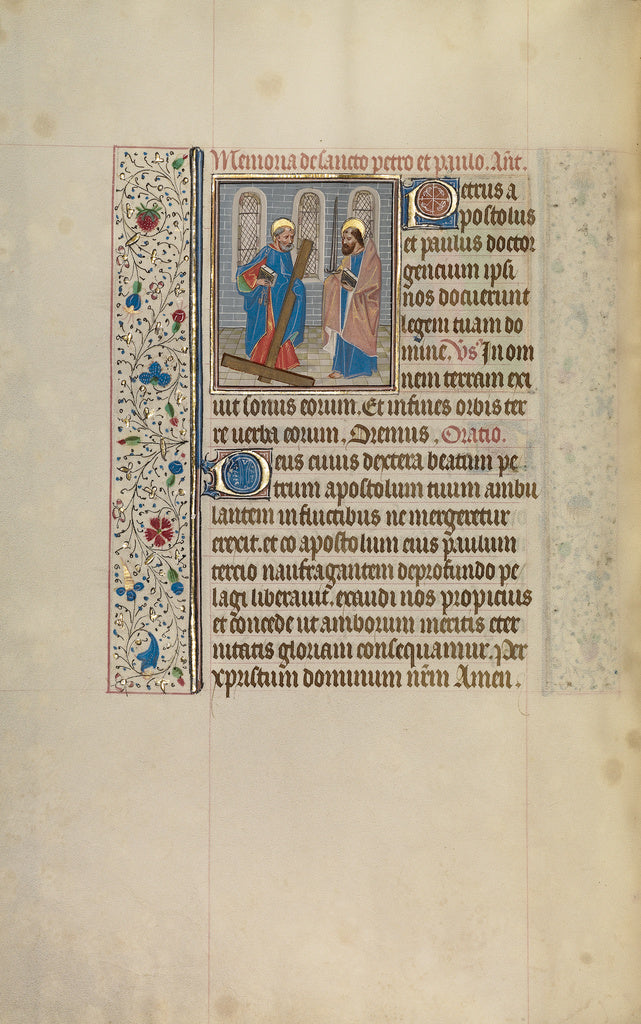 Memoria de sancto petro et paulo. Ant.
Petrus a
postolus
et paulus doctor
gencium ipsi
nos docuerunt
legem tuam do
mine. Vs In om
nem terram exi
uit sonus eorum. Et in fines orbis ter
re uerba eorum. Oremus. Oratio.
Deus cuius dextera beatum pe
trum apostolum tuum ambu
lantem in fluctibus ne mergeretur
erexit. et co apostolum eius paulum
tercio naufragantem de profundo pe
lagi liberauit. exaudi nos propicius
et concede ut amborum meritis eter
nitatis gloriam consequamur. Per
xpristum dominum nrm Amen.